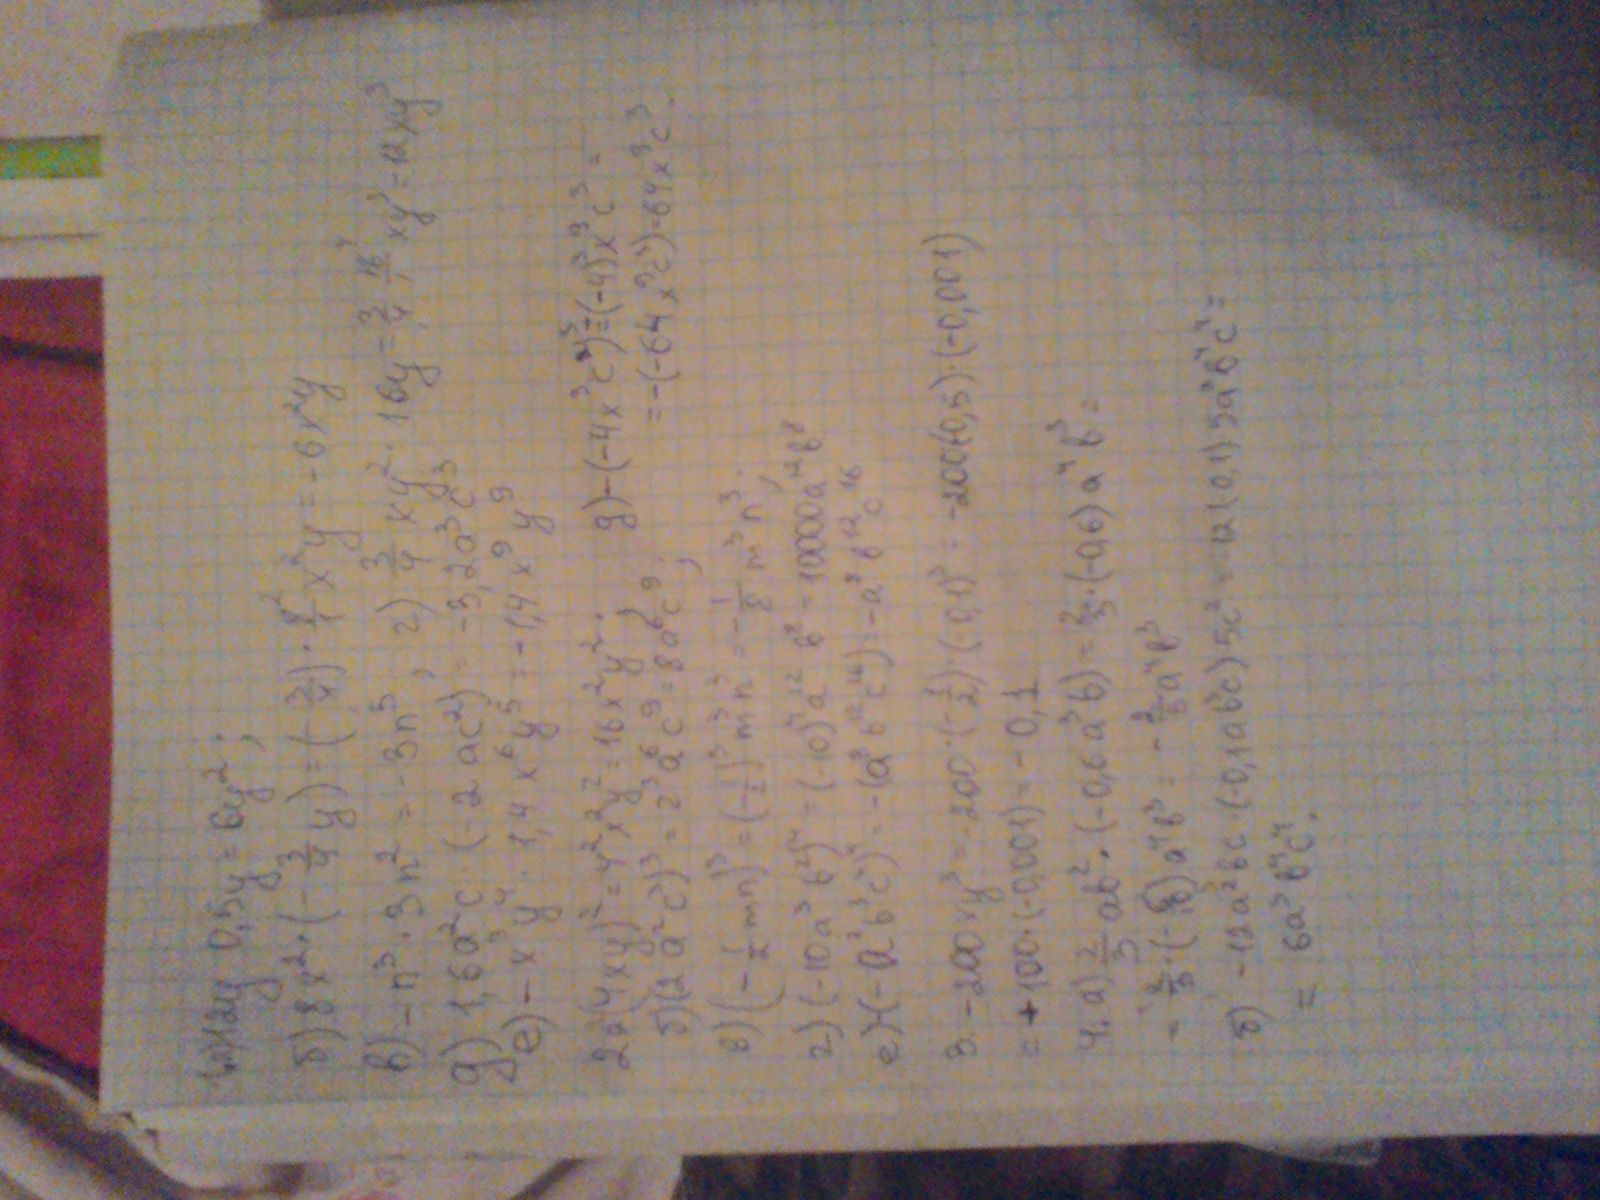 1.а)12y 0,5y = 6y²;
б) 8x² · (-3/4 y) = (-3/4) · 8/1 x²y = -6x²y
в) -n³ · 3n² = -3n⁵; г) 3/4 xy² · 16y = 3/4 · 16/1 xy³ = 12xy³
д) 1,6a²c · (-2ac²) = -3,2a³c³
е) -x³y⁴ · 1,4x⁶y⁵ = -1,4x⁹y⁹
2а(4xy)² = 4²x²y² = 16x²y²;
б)(2a²c³)³ = 2³a⁶c⁹ = 8a⁶c⁹;
д) -(-4x³c)³ = (-4)³x⁹c³ =
= -(-64x⁹c³) = 64x⁹c³.
в) (-1/2 mn)³ = (-1/2)³m³n³ = -1/8 m³n³.
г) (-10a³b²)⁴ = (-10)⁴a¹²b⁸ = 10000a¹²b⁸;
е) -(-a²b³c⁴)⁴ = -(a⁸b¹²c¹⁶) = -a⁸b¹²c¹⁶
3. -200xy³ = -200 · (-1/2) · (-0,1)³ = -200(-0,5) · (-0,001)
= +100 · (-0,001) = -0,1
4. а) 2/3 ab² · (-0,6a³b) = 2/3 · (-0,6) a⁴b³ =
б) -12a²bc · (-0,1ab³c) 5c² = -12(0,1) 5a³b⁴c⁴ =
= 6a³b⁴c⁴.